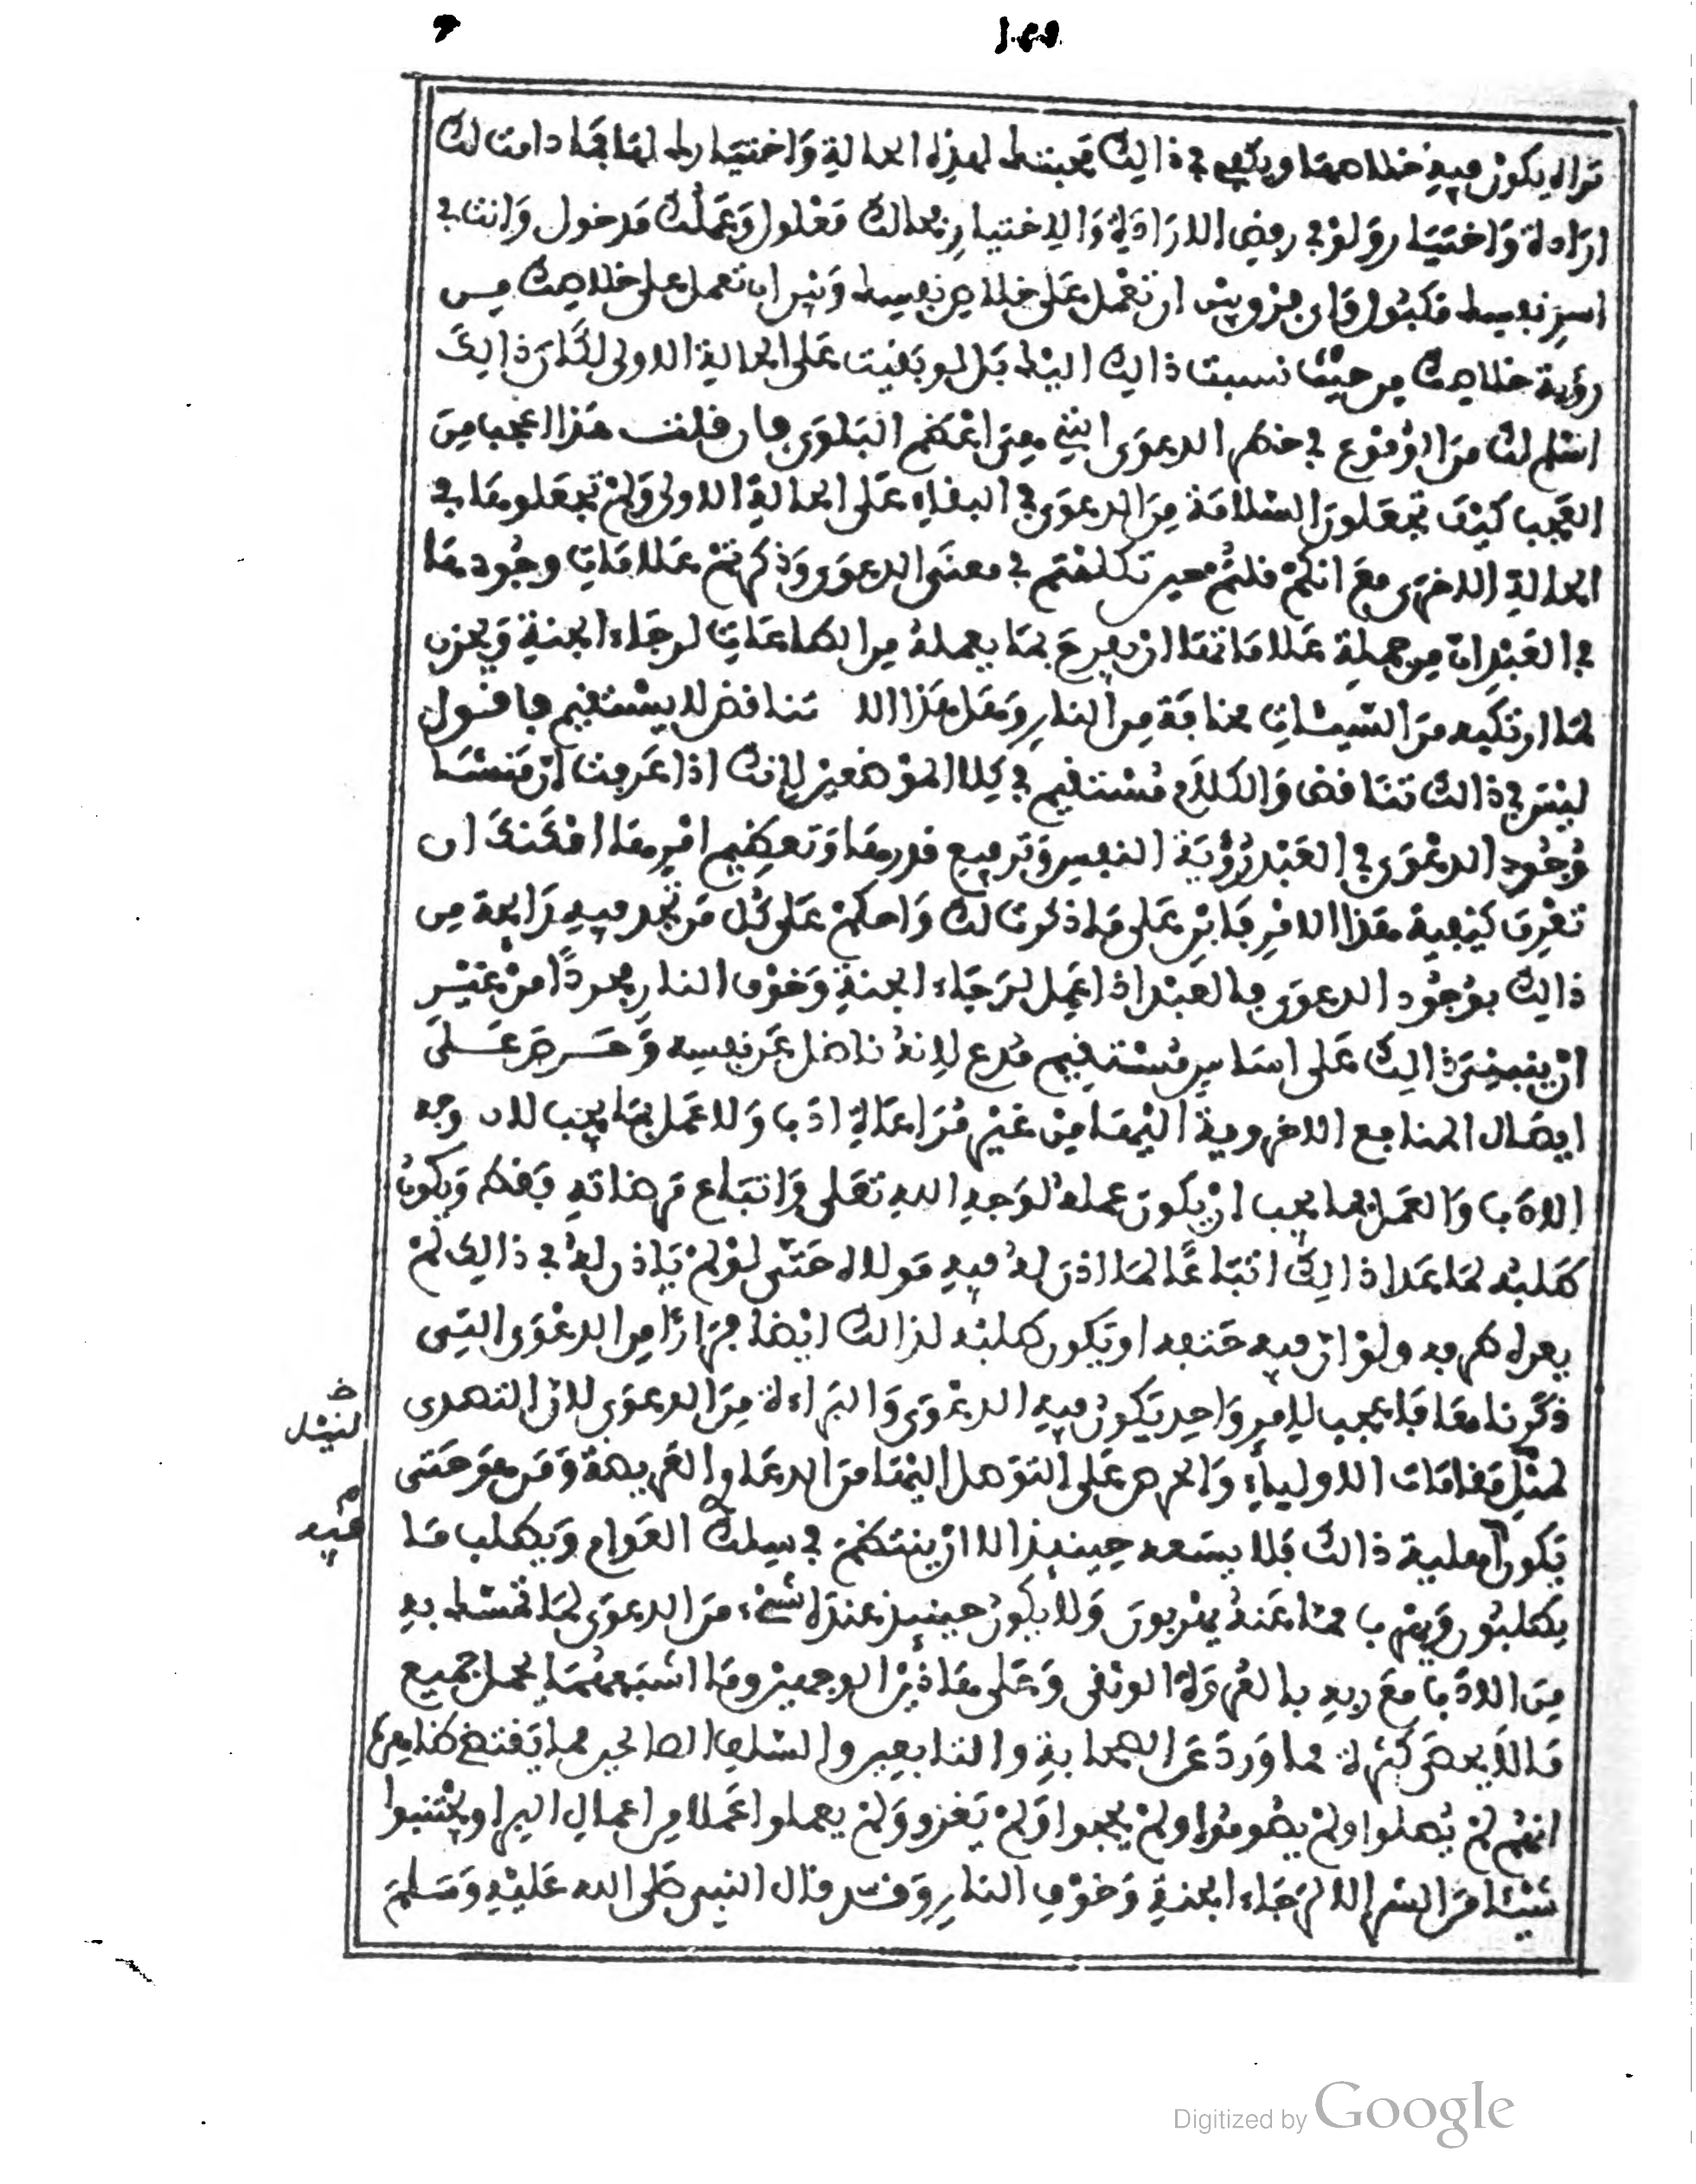 تراه يكون فيه خلاصها ويكفي في ذالك محبتك لهذه الحالة واختيارك لها فما دامت لك
ارادة واختيار ولو في رفض الارادة والاختيار فحالك معلول وعملك مدخول وانت في
اسر نفسك مكبول واي فرق بين ان تعمل على خلاص نفسك وبين ان تعمل على خلاصك من
رؤية خلاصك من حيث نسبت ذالك اليك بل لو بقيت على الحالة الاولى لكان ذالك
اسلم لك من الوقوع في خطر الدعوى التي هي اعظم البلوى فان قلت هذا اعجب من
العجب كيف تجعلون السلامة من الدعوى في البقاء على الحالة الاولى ولم تجعلوها في
الحالة الاخرى مع انكم قلتم حين تكلمتم في معنى الدعوى وذكرتم علامات وجودها
في العبد ان من جملة علاماتها ان يفرح بما يعمله من الطاعات لرجاء الجنة ويحزن
لما ارتكبه من السيئات مخافة من النار وهل هذا الا تناقض لا يستقيم فاقول
ليس في ذالك تناقض والكلام مستقيم في كلا الموضعين لانك اذا عرفت ان منشا
وجود الدعوى في العبد رؤية النفس وترفيع قدرها وتعظيم امرها امكنك ان
تعرف كيفية هذا الامر فابن على ما ذكرت لك واحكم على كل من تجد فيه رايحة من
ذالك بوجود الدعوى فالعبد اذا عمل لرجاء الجنة وخوف النار مجردا من غير
ان ينبني ذالك على اساس مستقيم مدع لانه ناضل عن نفسه وحرص على
ايصال المنافع الاخروية اليها من غير مراعاة ادب ولا عمل بما يجب لان وجه
الادب والعمل بما يجب ان يكون عمله لوجه الله تعلى واتباع مرضاته فقط ويكون
طلبه لما عدا ذالك اتباعا لما اذن له فيه مولاه حتى لو لم ياذن له في ذالك لم
يعرله طرفه ولو ان فيه حتفه او يكون طلبه لذالك ايضا فرارا من الدعوى التي
ذكرناها فاعجب لامر واحد يكون فيه الدعوى والبراءة من الدعوى لان التصدى
لمثل مقامات الاولياء والحرص على التوصل اليها من الدعاو العريضة ومن هو حتى
يكون اهلية ذالك فلا يسعه حينيذ الا ان ينتظم في سلك العوام ويطلب ما
يطلبون ويهرب مما عنه يهربون ولا يكون حينيذ عنده شيء من الدعوى لما تمسك به
من الادب مع ربه بالعروة الوثقى وعلى هاذين الوجهين وما اشبههما يحمل جميع
ما لا يحصى كثرة مما ورد عن الصحابة والتابعين والسلف الصالحين مما يقتضي ظاهره
انهم لم يصلوا ولم يصوموا ولم يحجوا ولم يغزو ولم يعملوا عملا من اعمال البر او يجتنبوا
شيئا من الشر الا لرجاء الجنة وخوف النار وقد قال النبي صلى الله عليه وسلم
لنيل
فيه
Digitized by Google